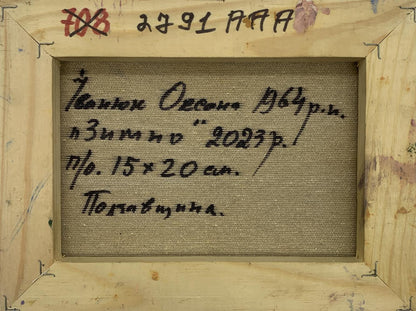 708 2791 AAA
Іванюк Оксана 1964 р.н.
"Зимно" 2023 р.
п/о. 15 x 20 см.
Полтавщина.